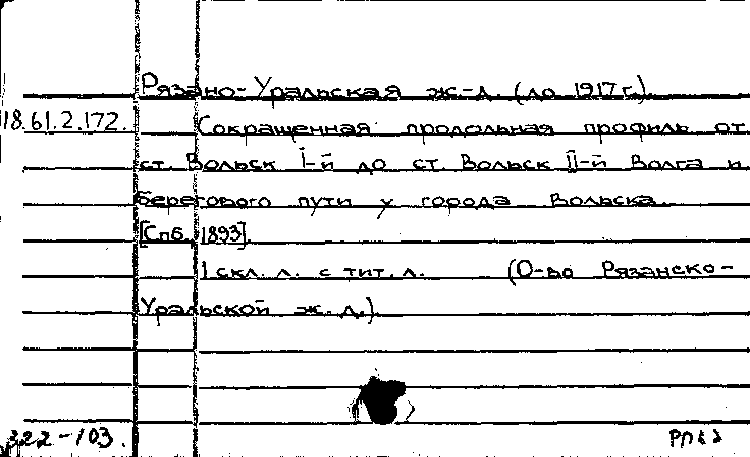 Рязано-Уральская ж.-д. (до 1917 г.)
18.61.2.172.
Сокращенная продольная профиль от
ст. Вольск I-й до ст. Вольск II-й Волга и
берегового пути у города Вольска.
[Спб. 1893].
1 скл. л. с тит. л. (О-во Рязанско-
Уральской ж. д.)
322-103.